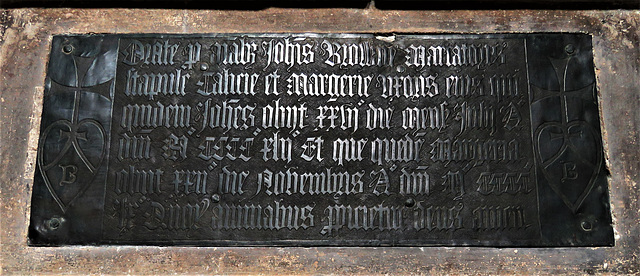 Orate p aiabȝ Joh̄is Browne mercatoris
stapule Calicie et Margerie uxoris eius qui
quidem Joh̄es obijt xxvj die mens̄ Julij A°
dn̄i M° CCCC° xlij Et que quedē Margeria
obijt xxij die Novembris A° dn̄i M° CCCC°
quo animabus ꝓpicietur deus amen
B B